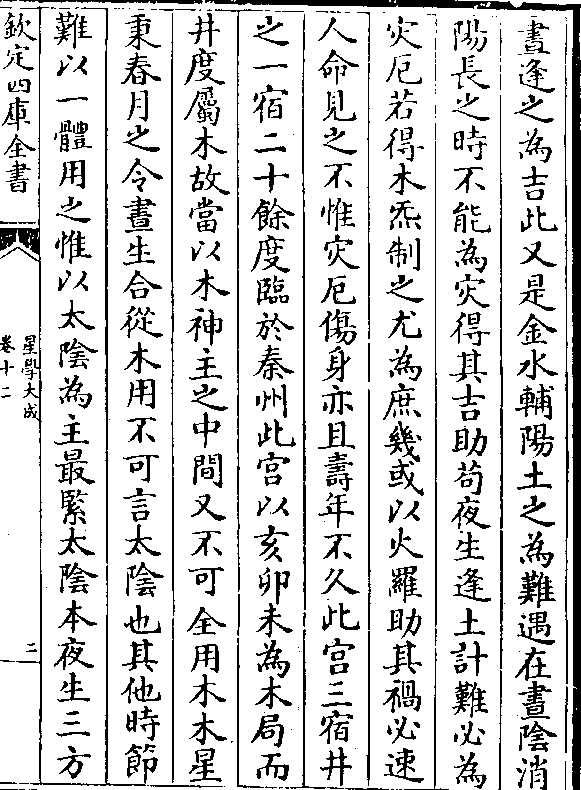 晝逢之為吉此又是金水輔陽土之為難遇在晝陰消
陽長之時不能為灾得其吉助苟夜生逢土計難必為
灾厄若得木炁制之尤為庶幾或以火羅助其禍必速
人命見之不惟灾厄傷身亦且壽年不久此宫三宿井
之一宿二十餘度臨於秦州此宫以亥卯未為木局而
井度屬木故當以木神主之中間又不可全用木木星
秉春月之令晝生合從木用不可言太陰也其他時節
難以一體用之惟以太陰為主最緊太陰本夜生三方
欽定四庫全書
星學大成
卷十二
三